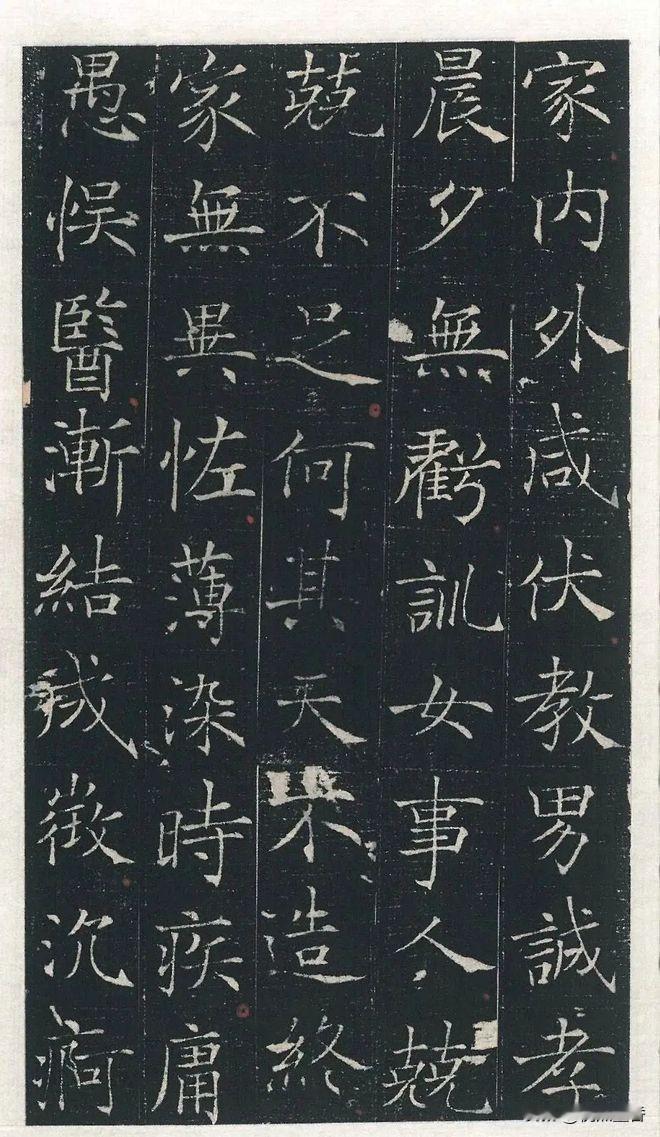 家内外咸伏教男誠孝
晨夕無虧訓女事人兢
兢不足何其天不造終
家無異恠薄染時疾庸
愚悞醫漸結成徴沉痾